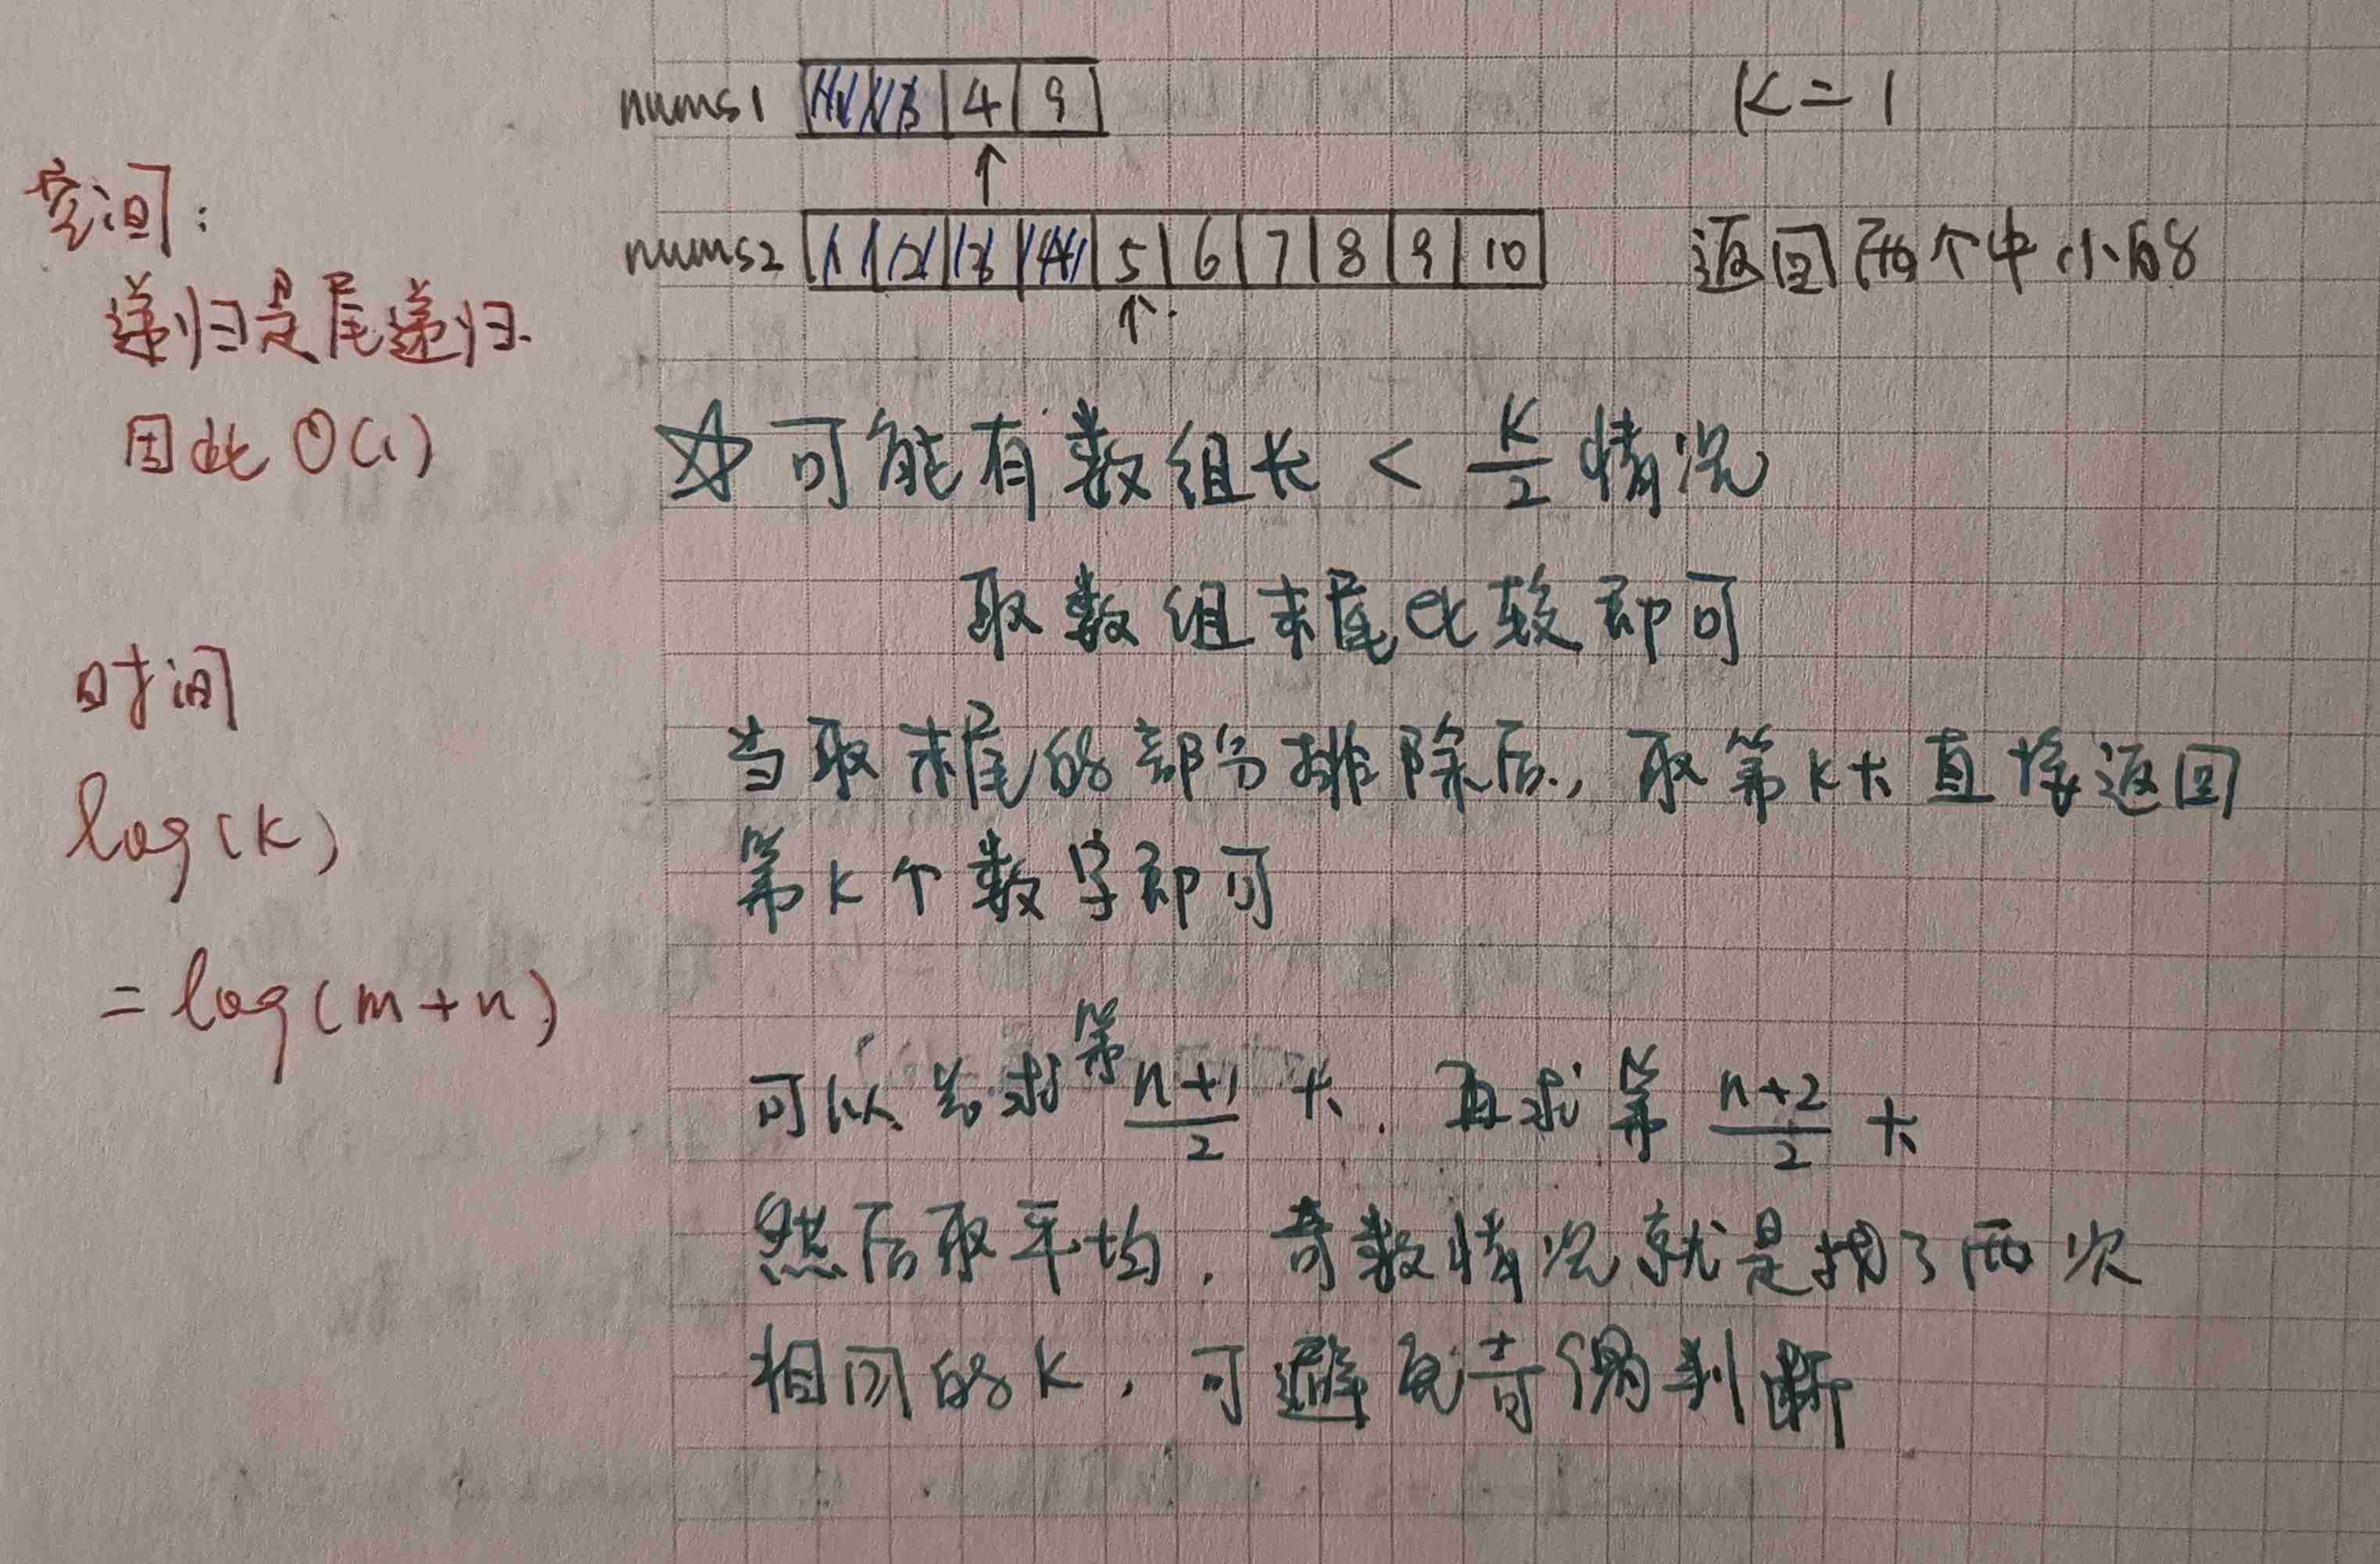 nums1 1 3 4 9
K=1
nums2 1 2 3 4 5 6 7 8 9 10
返回两个中小的
空间:
递归是尾递归.
因此 O(1)
☆ 可能有数组长 < K/2 情况
取数组末尾比较即可
时间
log(K)
= log(m+n)
当取末尾的部分排除后, 取第K大直接返回
第K个数字即可
可以先求第 n+1/2 大. 再求第 n+2/2 大
然后取平均, 奇数情况就是找了两次
相同的K, 可避免奇偶判断